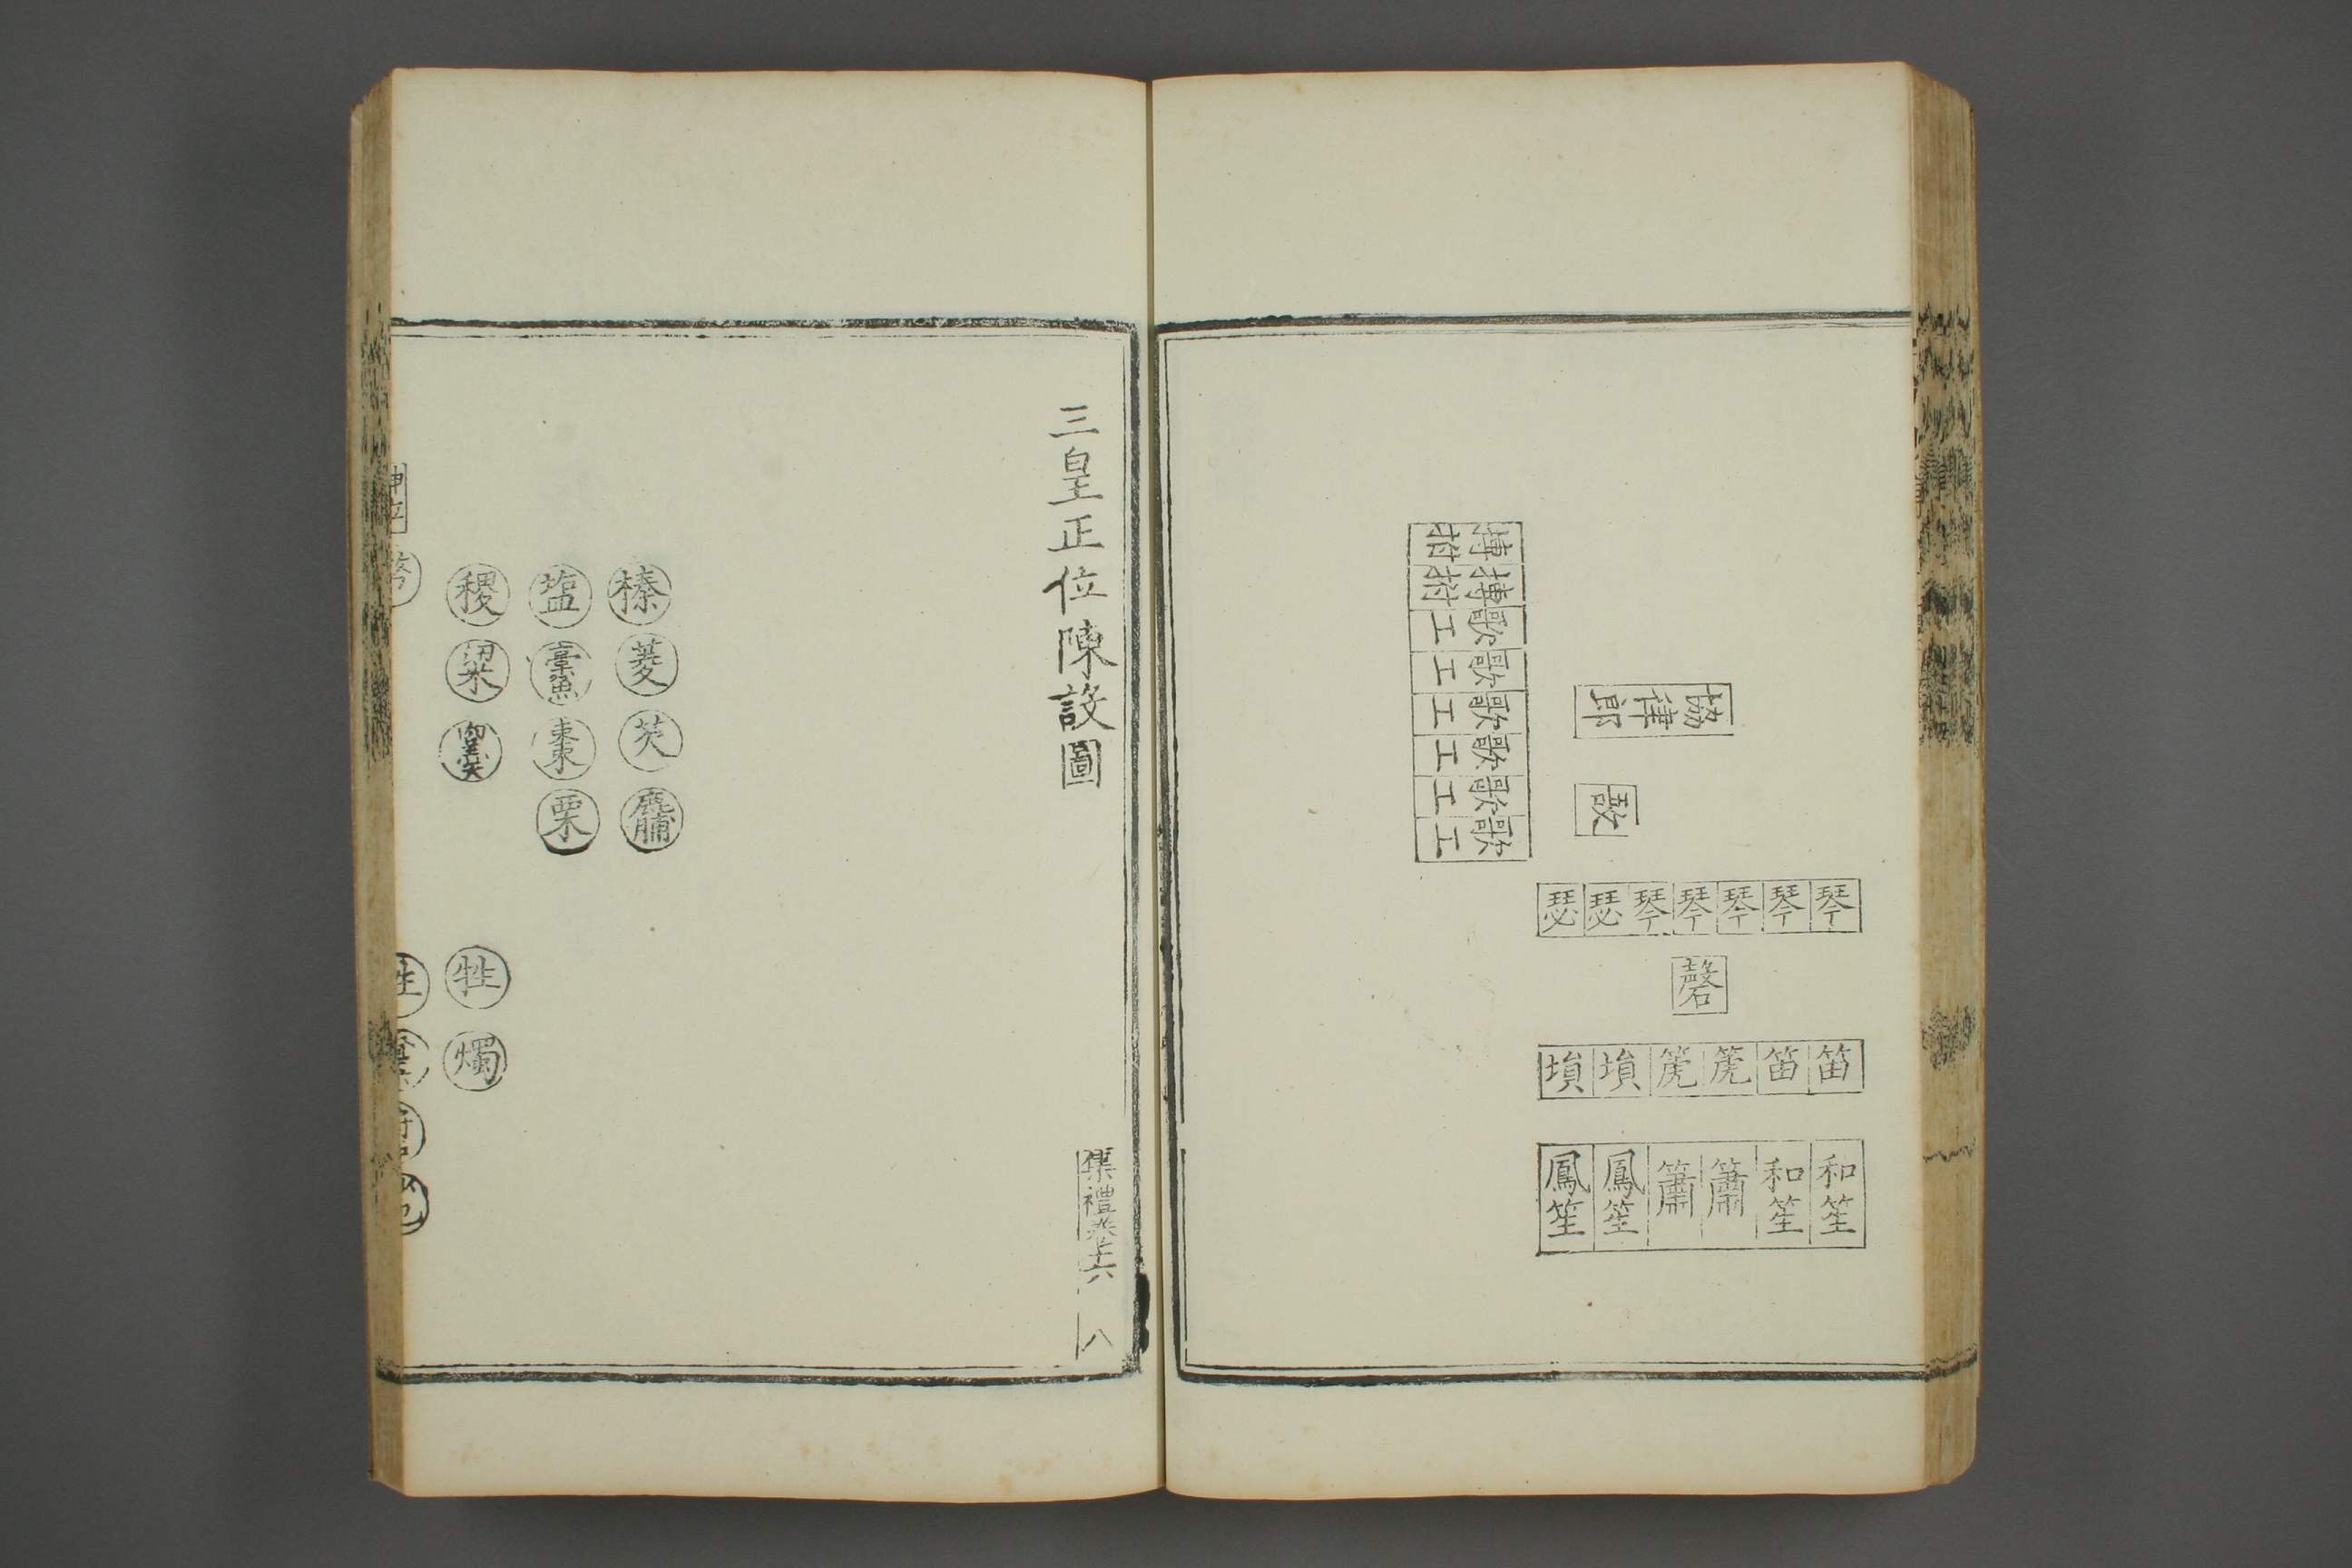 協律郎
敔
搏拊
搏拊
歌工
歌工
歌工
歌工
歌工
歌工
琴 琴 琴 琴 琴 瑟 瑟
磬
笛 笛 箎 箎 塤 塤
和笙 和笙 簫 簫 鳳笙 鳳笙
三皇正位陳設圖
集禮卷十六 八
榛 菱 芡 麷
塩 藁魚 棗 栗
稷 粱
牲 燭
神位